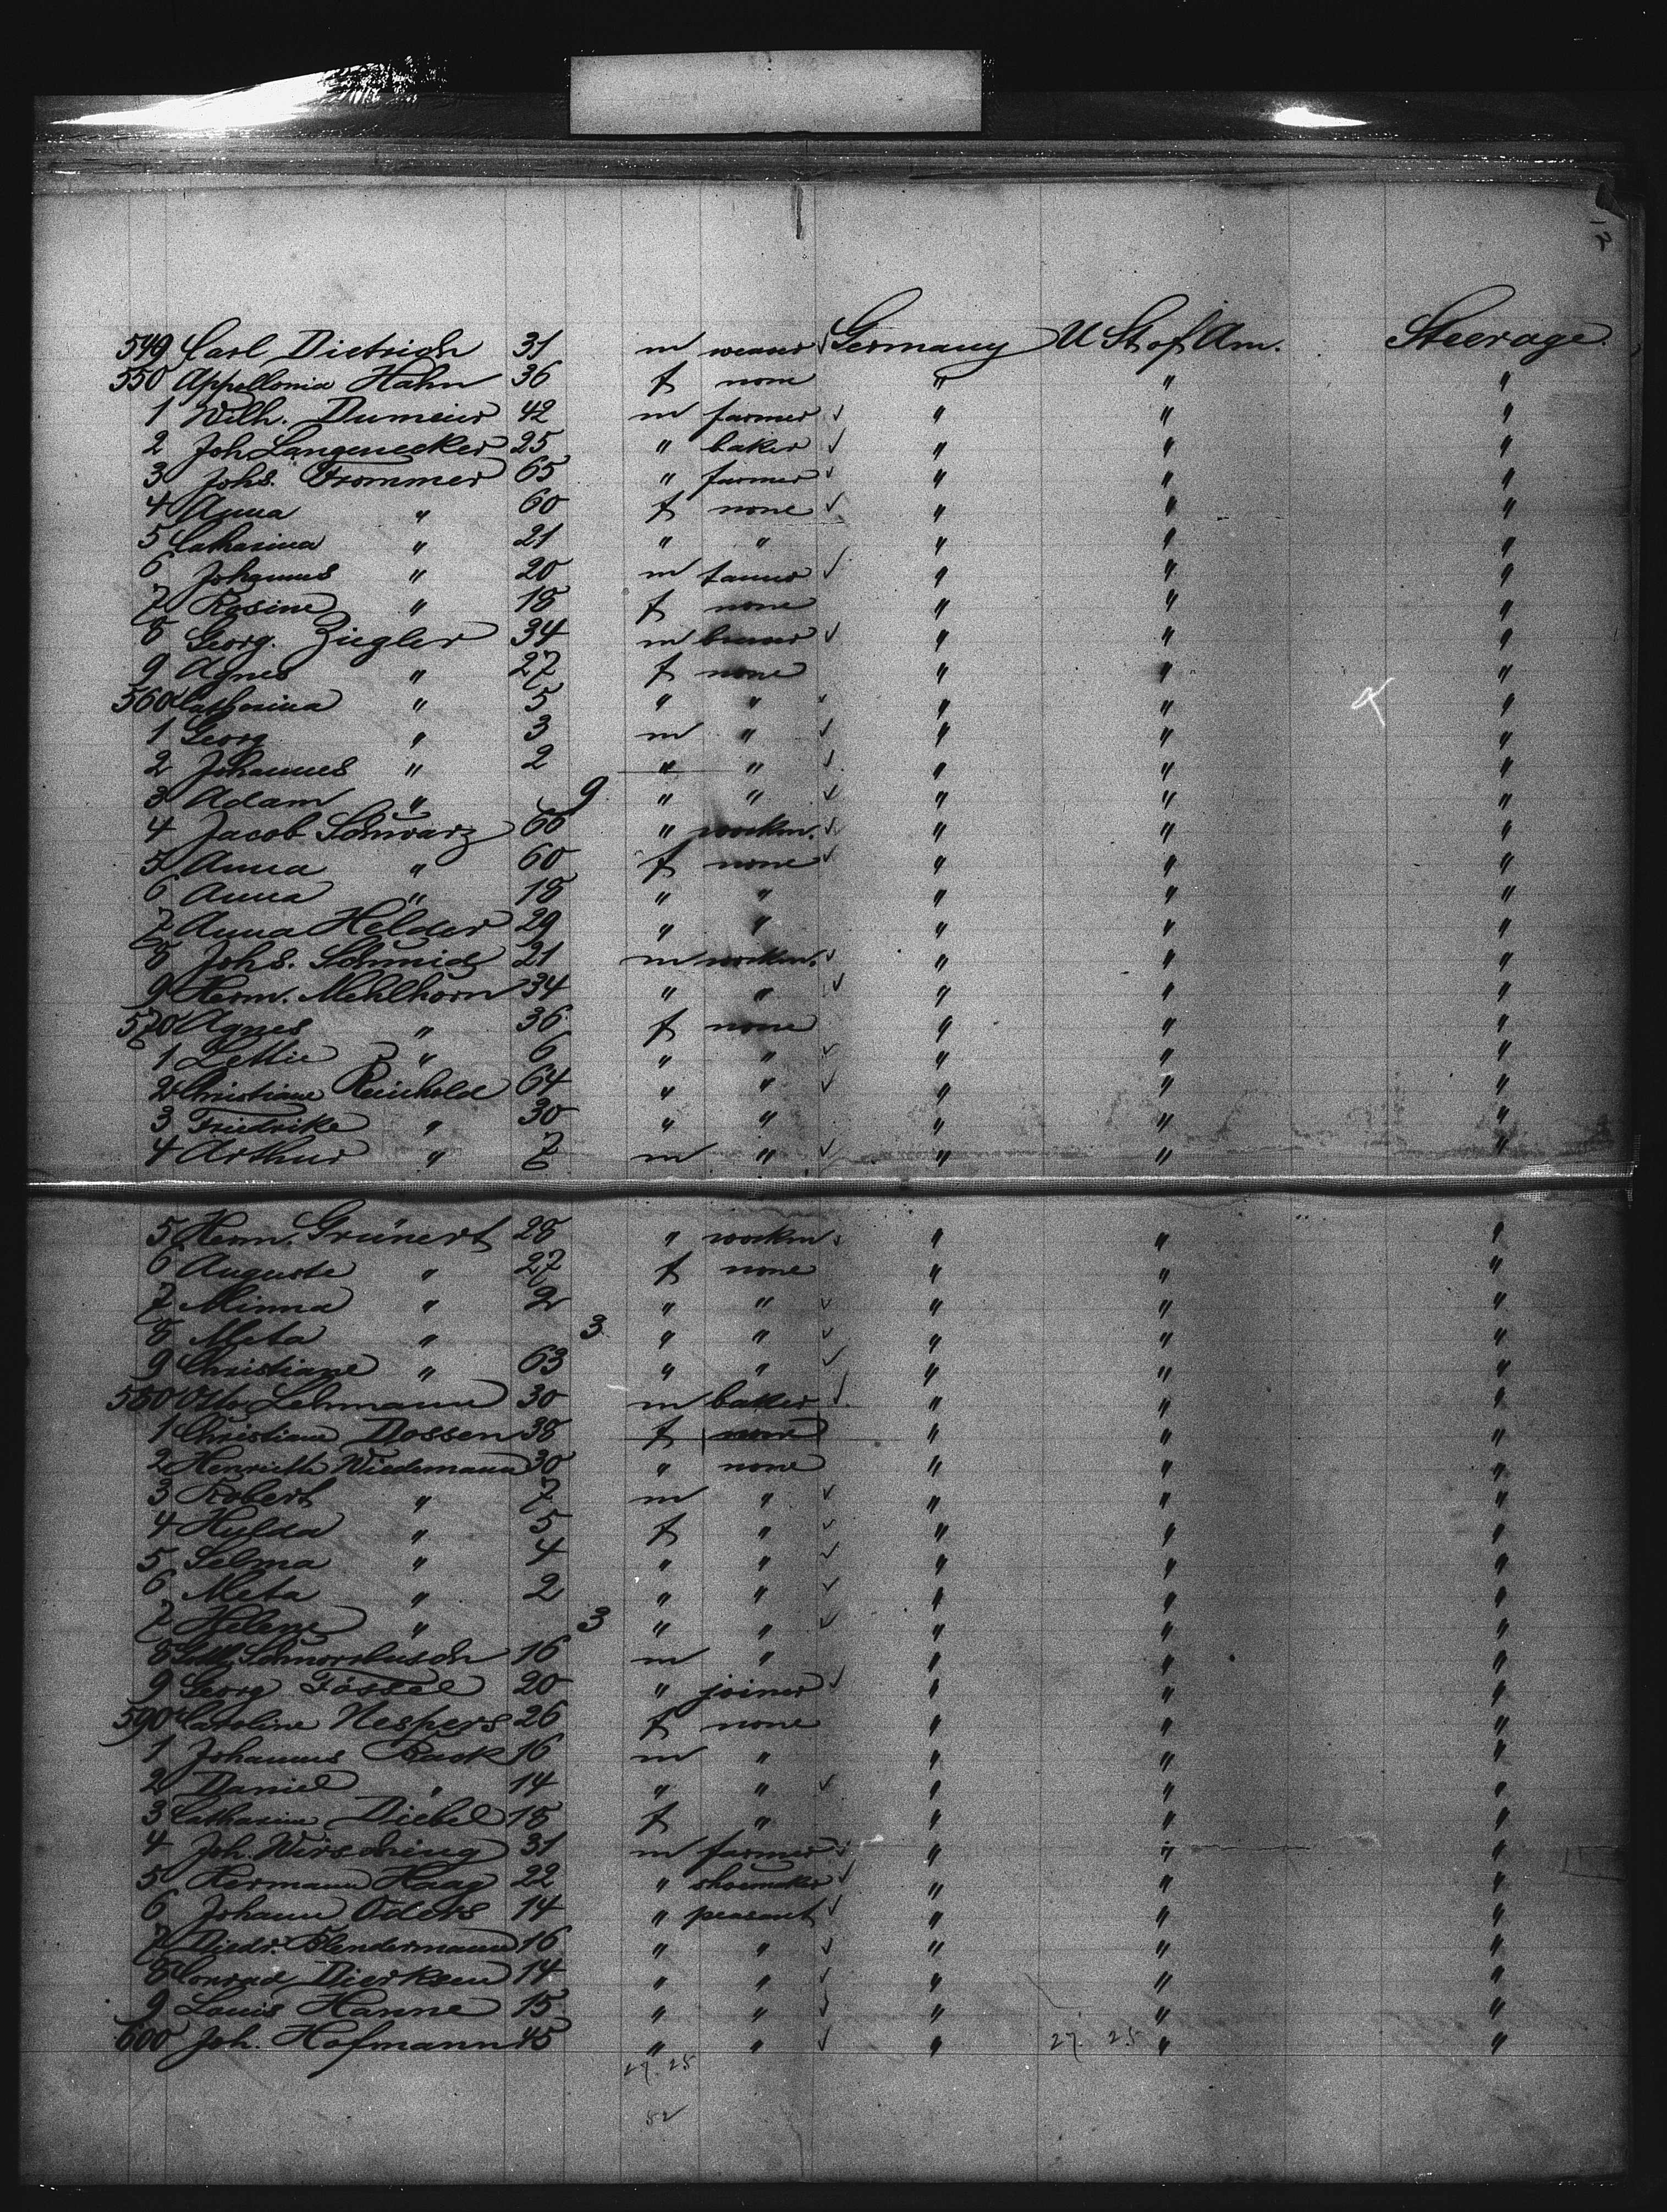 549 Carl Dietrich 31 m weaver Germany U St of Am. Steerage.
550 Appellonia Hahn 36 f none " " "
1 Wilh. Dumeier 42 m farmer " " "
2 Joh Langenecker 25 " baker " " "
3 Johs. Trommer 65 " farmer " " "
4 Anna " 60 f none " " "
5 Catharina " 21 " " " " "
6 Johannes " 20 m tanner " " "
7 Rosine " 18 f none " " "
8 Georg. Ziegler 34 m " " "
9 Agnes " 27 f none " " "
560 Catharina " 5 " " " " "
1 Georg " 3 m " " " "
2 Johannes " 2 " " " " "
3 Adam " 9 " " " " "
4 Jacob Schwarz 66 " workm. " " "
5 Anna " 60 f none " " "
6 Anna " 18 " " " " "
7 Anna Helder 29 " " " " "
8 Johs. Schmid 21 m workm. " " "
9 Herm. Mehlhorn 34 " " " " "
570 Agnes " 36 f none " " "
1 Lettie " 6 " " " " "
2 Christiane Reichold 64 " " " " "
3 Friedrike " 30 " " " " "
4 Arthur " 7 m " " " "
5 Herm. Grünert 28 " workm " " "
6 Auguste " 27 f none " " "
7 Minna " 2 " " " " "
8 Meta " 3 " " " " "
9 Christiane " 63 " " " " "
580 Otto Lehmann 30 m baker " " "
1 Christiane Dossen 38 f none " " "
2 Henriette Wiedemann 30 " none " " "
3 Robert " 7 m " " " "
4 Hulda " 5 f " " " "
5 Selma " 4 " " " " "
6 Meta " 2 " " " " "
7 Helene " 3 " " " " "
8 Schnorrbusch 16 m " " " "
9 Georg Fössel 20 " joiner " " "
590 Caroline Nespers 26 f none " " "
1 Johannes Back 16 m " " " "
2 Daniel " 14 " " " " "
3 Catharine Diebel 18 f " " " "
4 Joh. Wirsching 31 m farmer " " "
5 Hermann Haag 22 " shoemaker " " "
6 Johann Oders 14 " peasant " " "
7 Diedr. Blendermann 16 " " " " "
8 Conrad Dierksen 14 " " " " "
9 Louis Hanne 15 " " " " "
600 Joh. Hofmann 45 " " " 27 25 " "
27 25
52